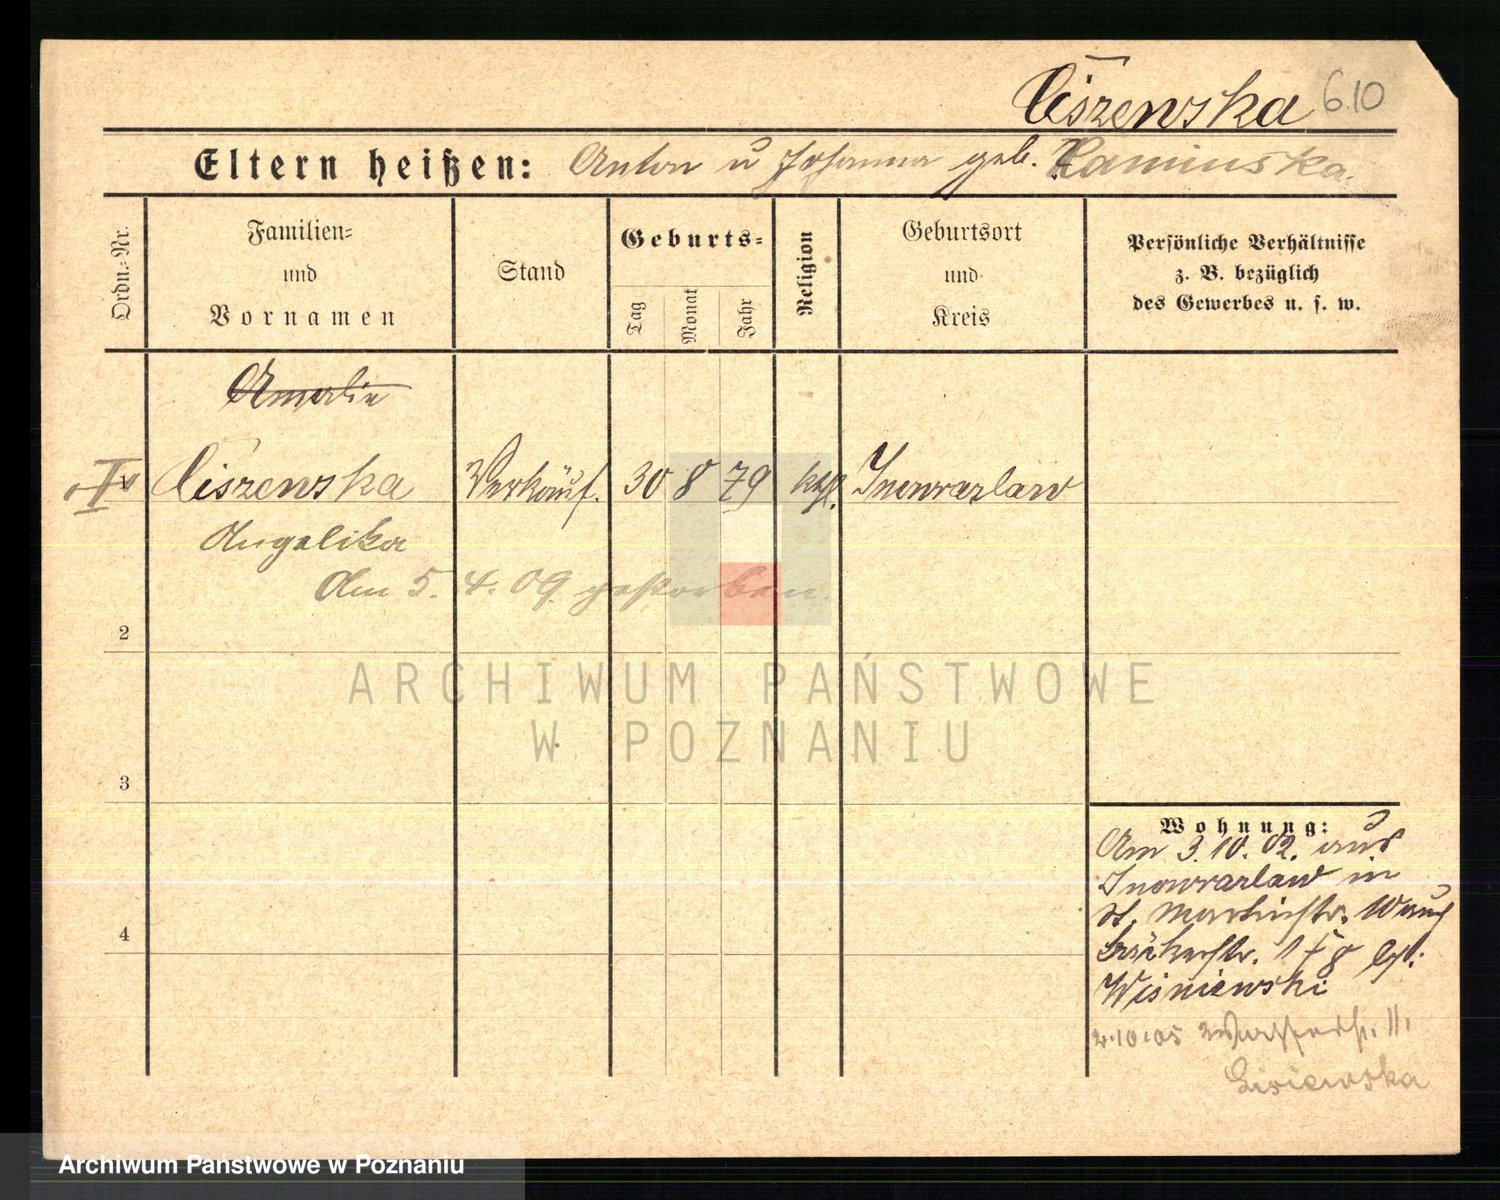 Ciszewska 6.10
Eltern heißen: Anton u Johanna geb. Kaminska.
Ordn.-Nr.
Familien-
und
Vornamen
Stand
Geburts-
Tag
Monat
Jahr
Religion
Geburtsort
und
Kreis
Persönliche Verhältnisse
z. B. bezüglich
des Gewerbes u. s. w.
Amalia
Ciszewska Verkäuf. 30 8 79 kth. Inowrazlaw
Angelika
Am 5. 4. 09 gestorben.
2
ARCHIWUM PAŃSTWOWE
W POZNANIU
3
Wohnung:
Am 3.10.02. aus
Inowrazlaw in
St. Martinstr.
4
Wisniewski
2.10.05 11.
Lisiewska
Archiwum Państwowe w Poznaniu